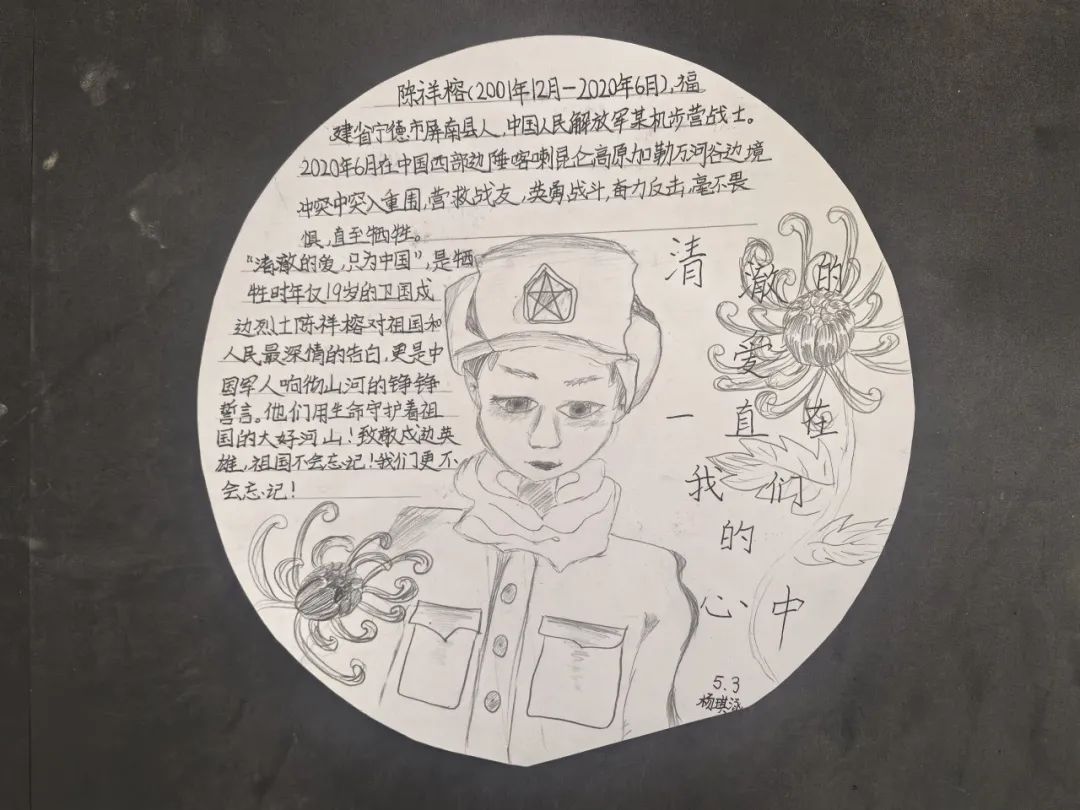 陈祥榕(2001年12月—2020年6月),福
建省宁德市屏南县人,中国人民解放军某机步营战士。
2020年6月在中国西部边陲喀喇昆仑高原加勒万河谷边境
冲突中突入重围,营救战友,英勇战斗,奋力反击,毫不畏
惧,直至牺牲。
“清澈的爱,只为中国”,是牺
牲时年仅19岁的卫国戍
边烈士陈祥榕对祖国和
人民最深情的告白,更是中
国军人响彻山河的铮铮
誓言。他们用生命守护着祖
国的大好河山!致敬戍边英
雄,祖国不会忘记!我们更不
会忘记!
清澈的
爱
一直在
我们
的
心中
5.3
杨琪